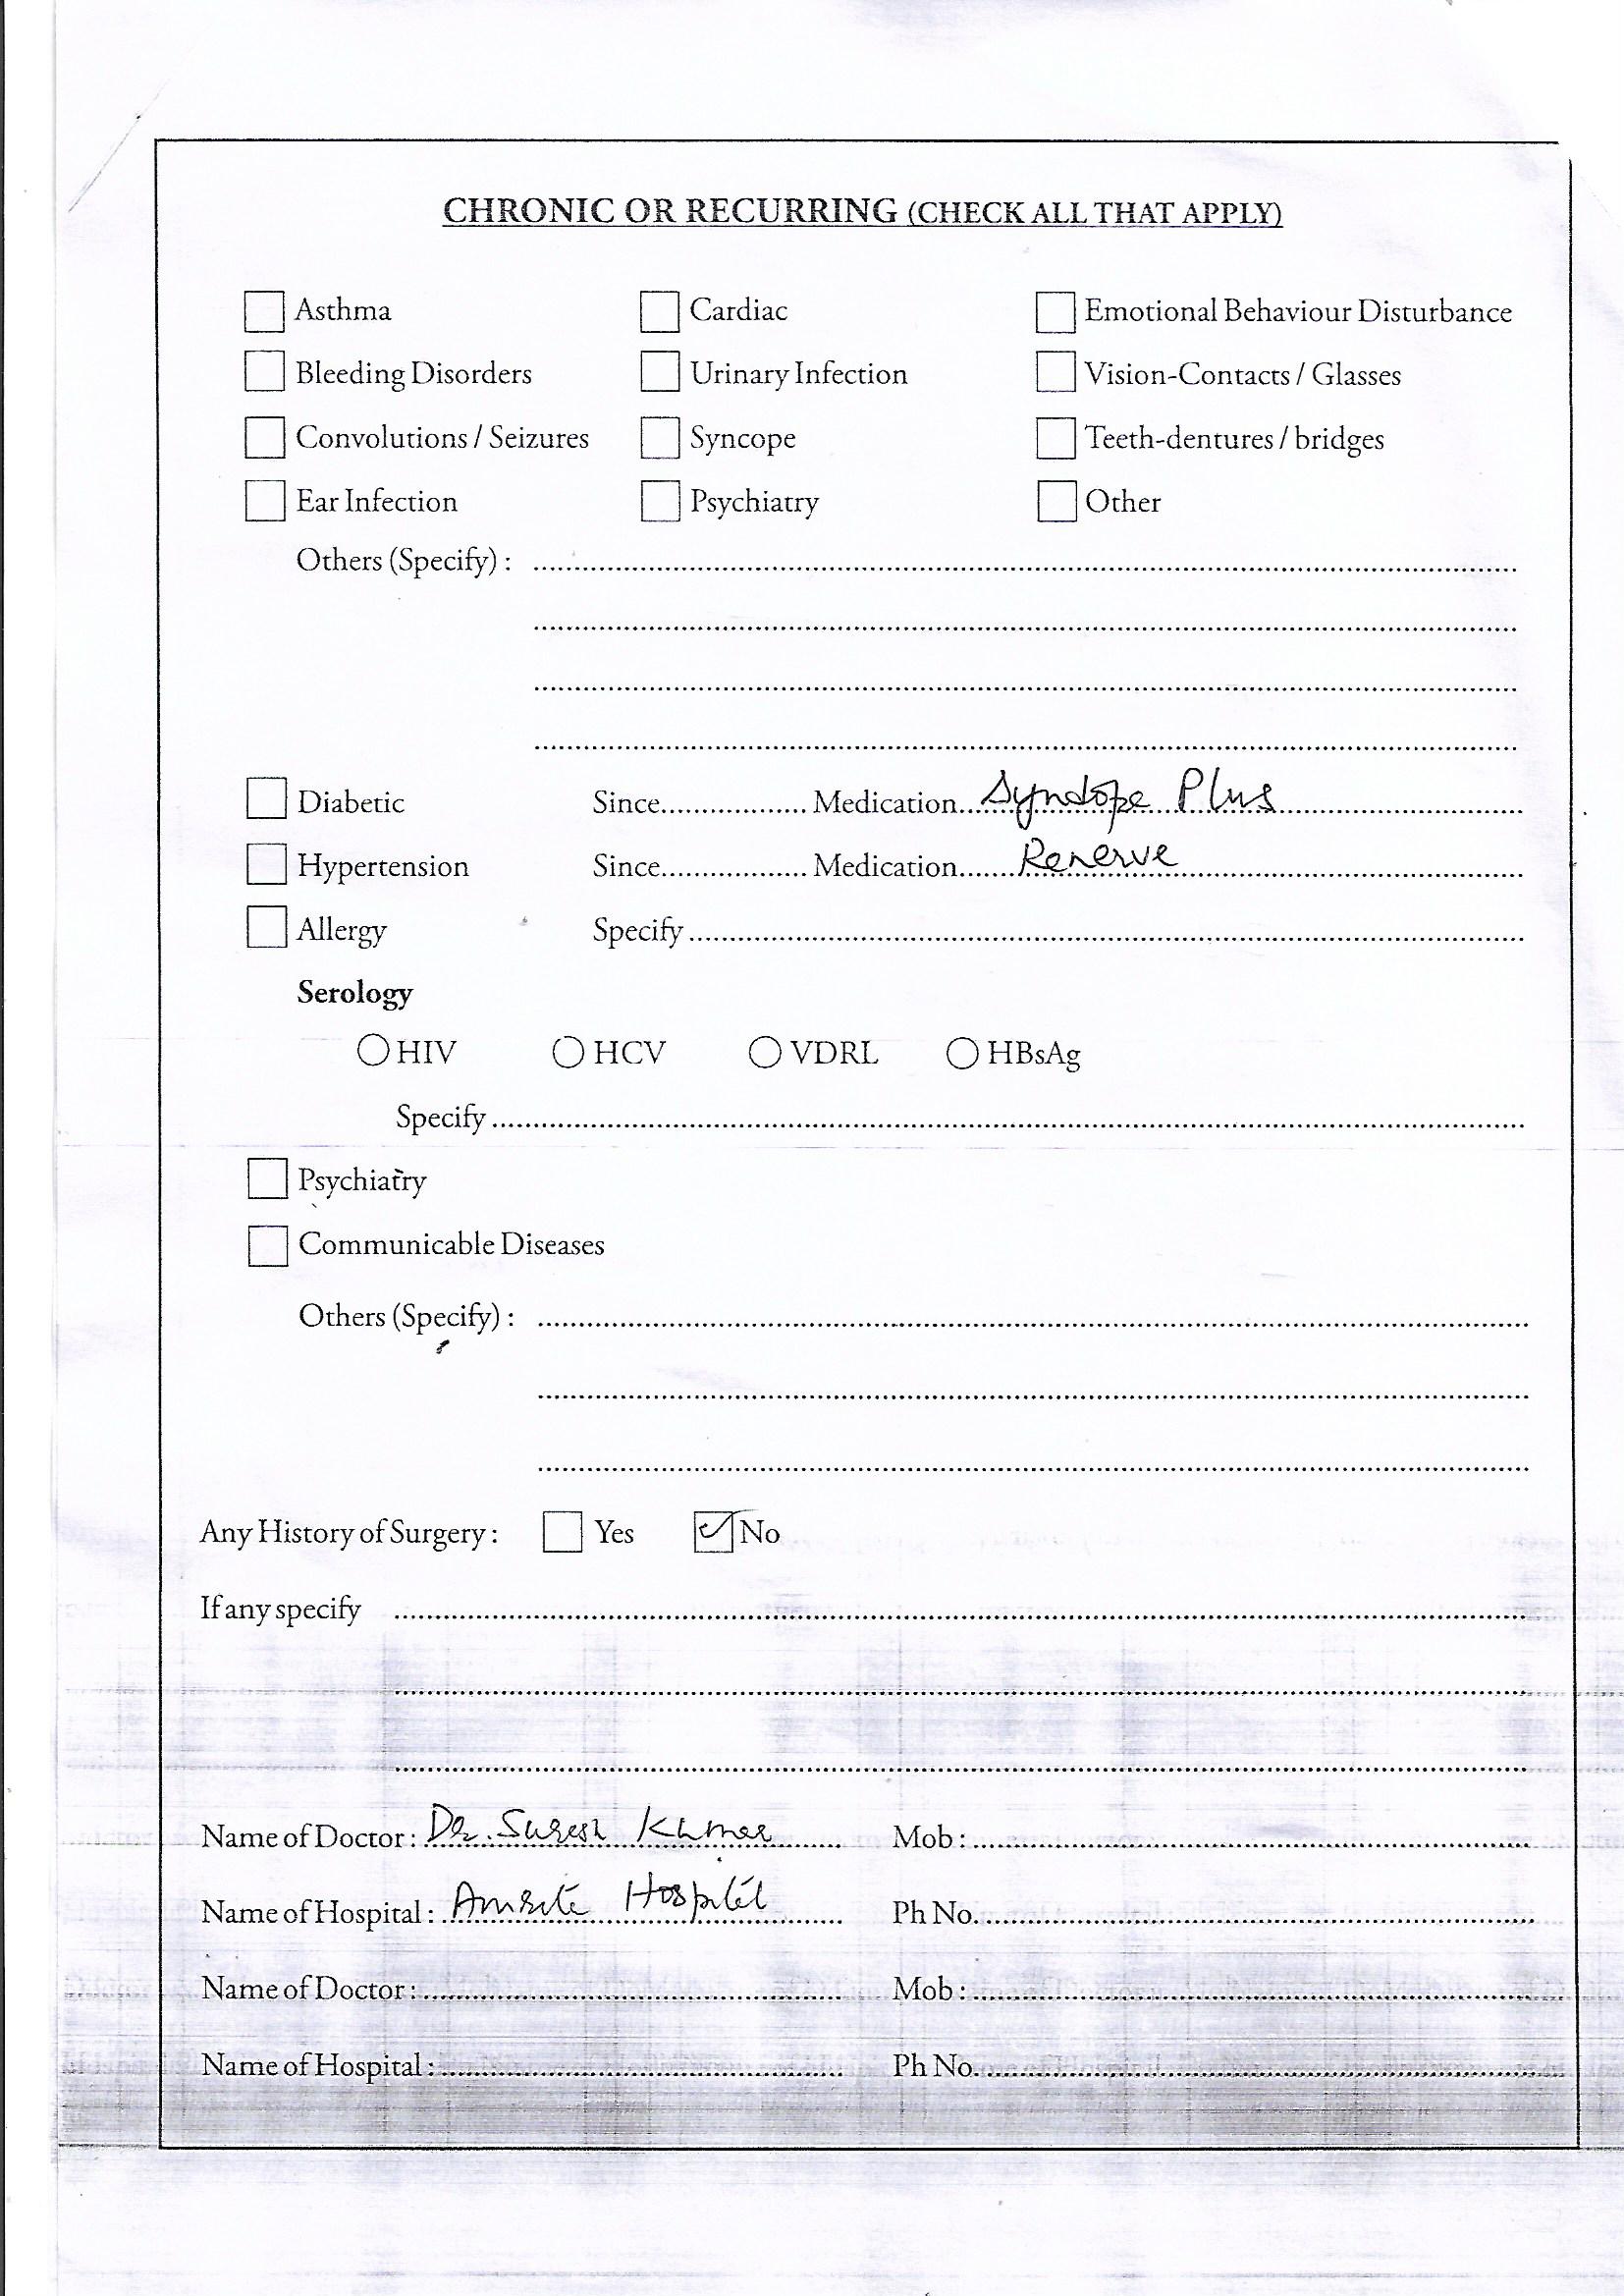 CHRONIC OR RECURRING (CHECK ALL THAT APPLY)
Asthma Cardiac Emotional Behaviour Disturbance
Bleeding Disorders Urinary Infection Vision-Contacts / Glasses
Convolutions / Seizures Syncope Teeth-dentures / bridges
Ear Infection Psychiatry Other
Others (Specify) :
Diabetic Since Medication Syndope Plus
Hypertension Since Medication Renerve
Allergy Specify
Serology
HIV HCV VDRL HBsAg
Specify
Psychiatry
Communicable Diseases
Others (Specify) :
Any History of Surgery : Yes ✓ No
If any specify
Name of Doctor : Dr. Suresh Kumar Mob :
Name of Hospital : Amrita Hospital Ph No.
Name of Doctor : Mob :
Name of Hospital : Ph No.